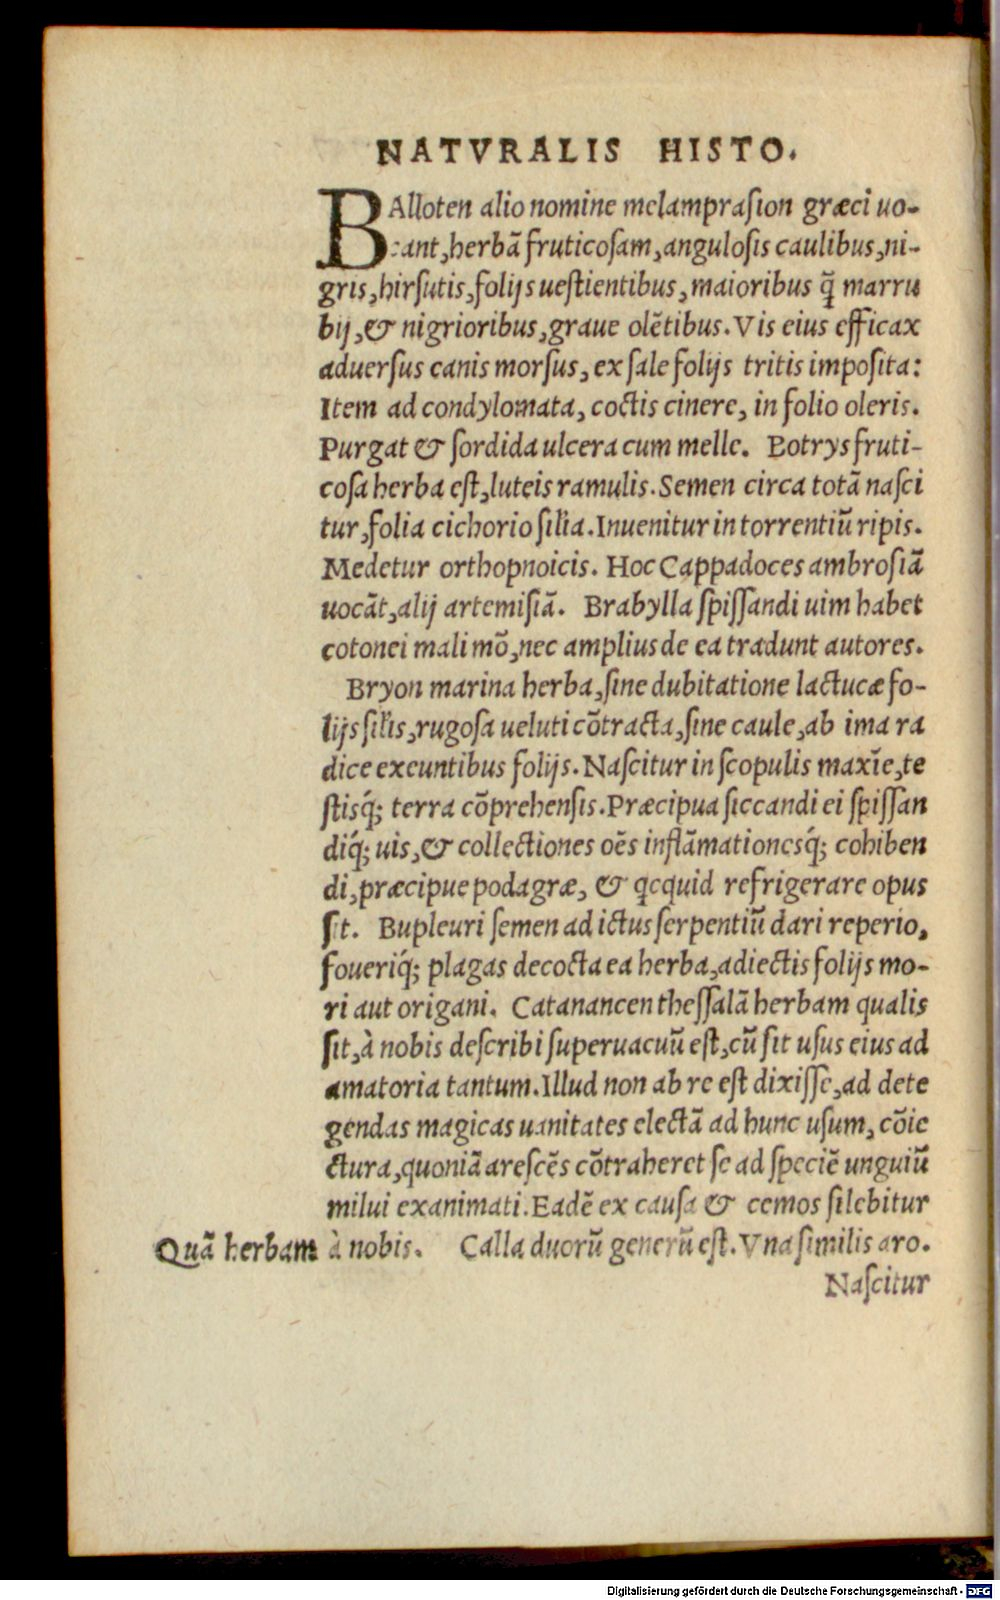 NATVRALIS HISTO.
BAlloten alio nomine melamprasion græci uo-
cant, herbā fruticosam, angulosis caulibus, ni-
gris, hirsutis, folijs uestientibus, maioribus q̃ marru
bij, & nigrioribus, graue olētibus. Vis eius efficax
aduersus canis morsus, ex sale folijs tritis imposita:
Item ad condylomata, coctis cinere, in folio oleris.
Purgat & sordida ulcera cum melle. Botrys fruti-
cosa herba est, luteis ramulis. Semen circa totā nasci
tur, folia cichorio sil̃ia. Inuenitur in torrentiū ripis.
Medetur orthopnoicis. Hoc Cappadoces ambrosiā
uocāt, alij artemisiā. Brabylla spissandi uim habet
cotonei mali mō, nec amplius de ea tradunt autores.
Bryon marina herba, sine dubitatione lactucæ fo-
lijs sil̃is, rugosa ueluti cōtracta, sine caule, ab ima ra
dice exeuntibus folijs. Nascitur in scopulis maxīe, te
stisq́; terra cōprehensis. Præcipua siccandi ei spissan
diq́; uis, & collectiones oēs inflāmationesq́; cohiben
di, præcipue podagræ, & qcquid refrigerare opus
sit. Bupleuri semen ad ictus serpentiū dari reperio,
foueriq́; plagas decocta ea herba, adiectis folijs mo-
ri aut origani. Catanancen thessalā herbam qualis
sit, à nobis describi superuacuū est, cū sit usus eius ad
amatoria tantum. Illud non ab re est dixisse, ad dete
gendas magicas uanitates electā ad hunc usum, cōie
ctura, quoniā arescēs cōtraheret se ad speciē unguiū
milui exanimati. Eadē ex causa & cemos silebitur
Quā herbam à nobis. Calla duorū generū est. Vna similis aro.
Nascitur
Digitalisierung gefördert durch die Deutsche Forschungsgemeinschaft - DFG